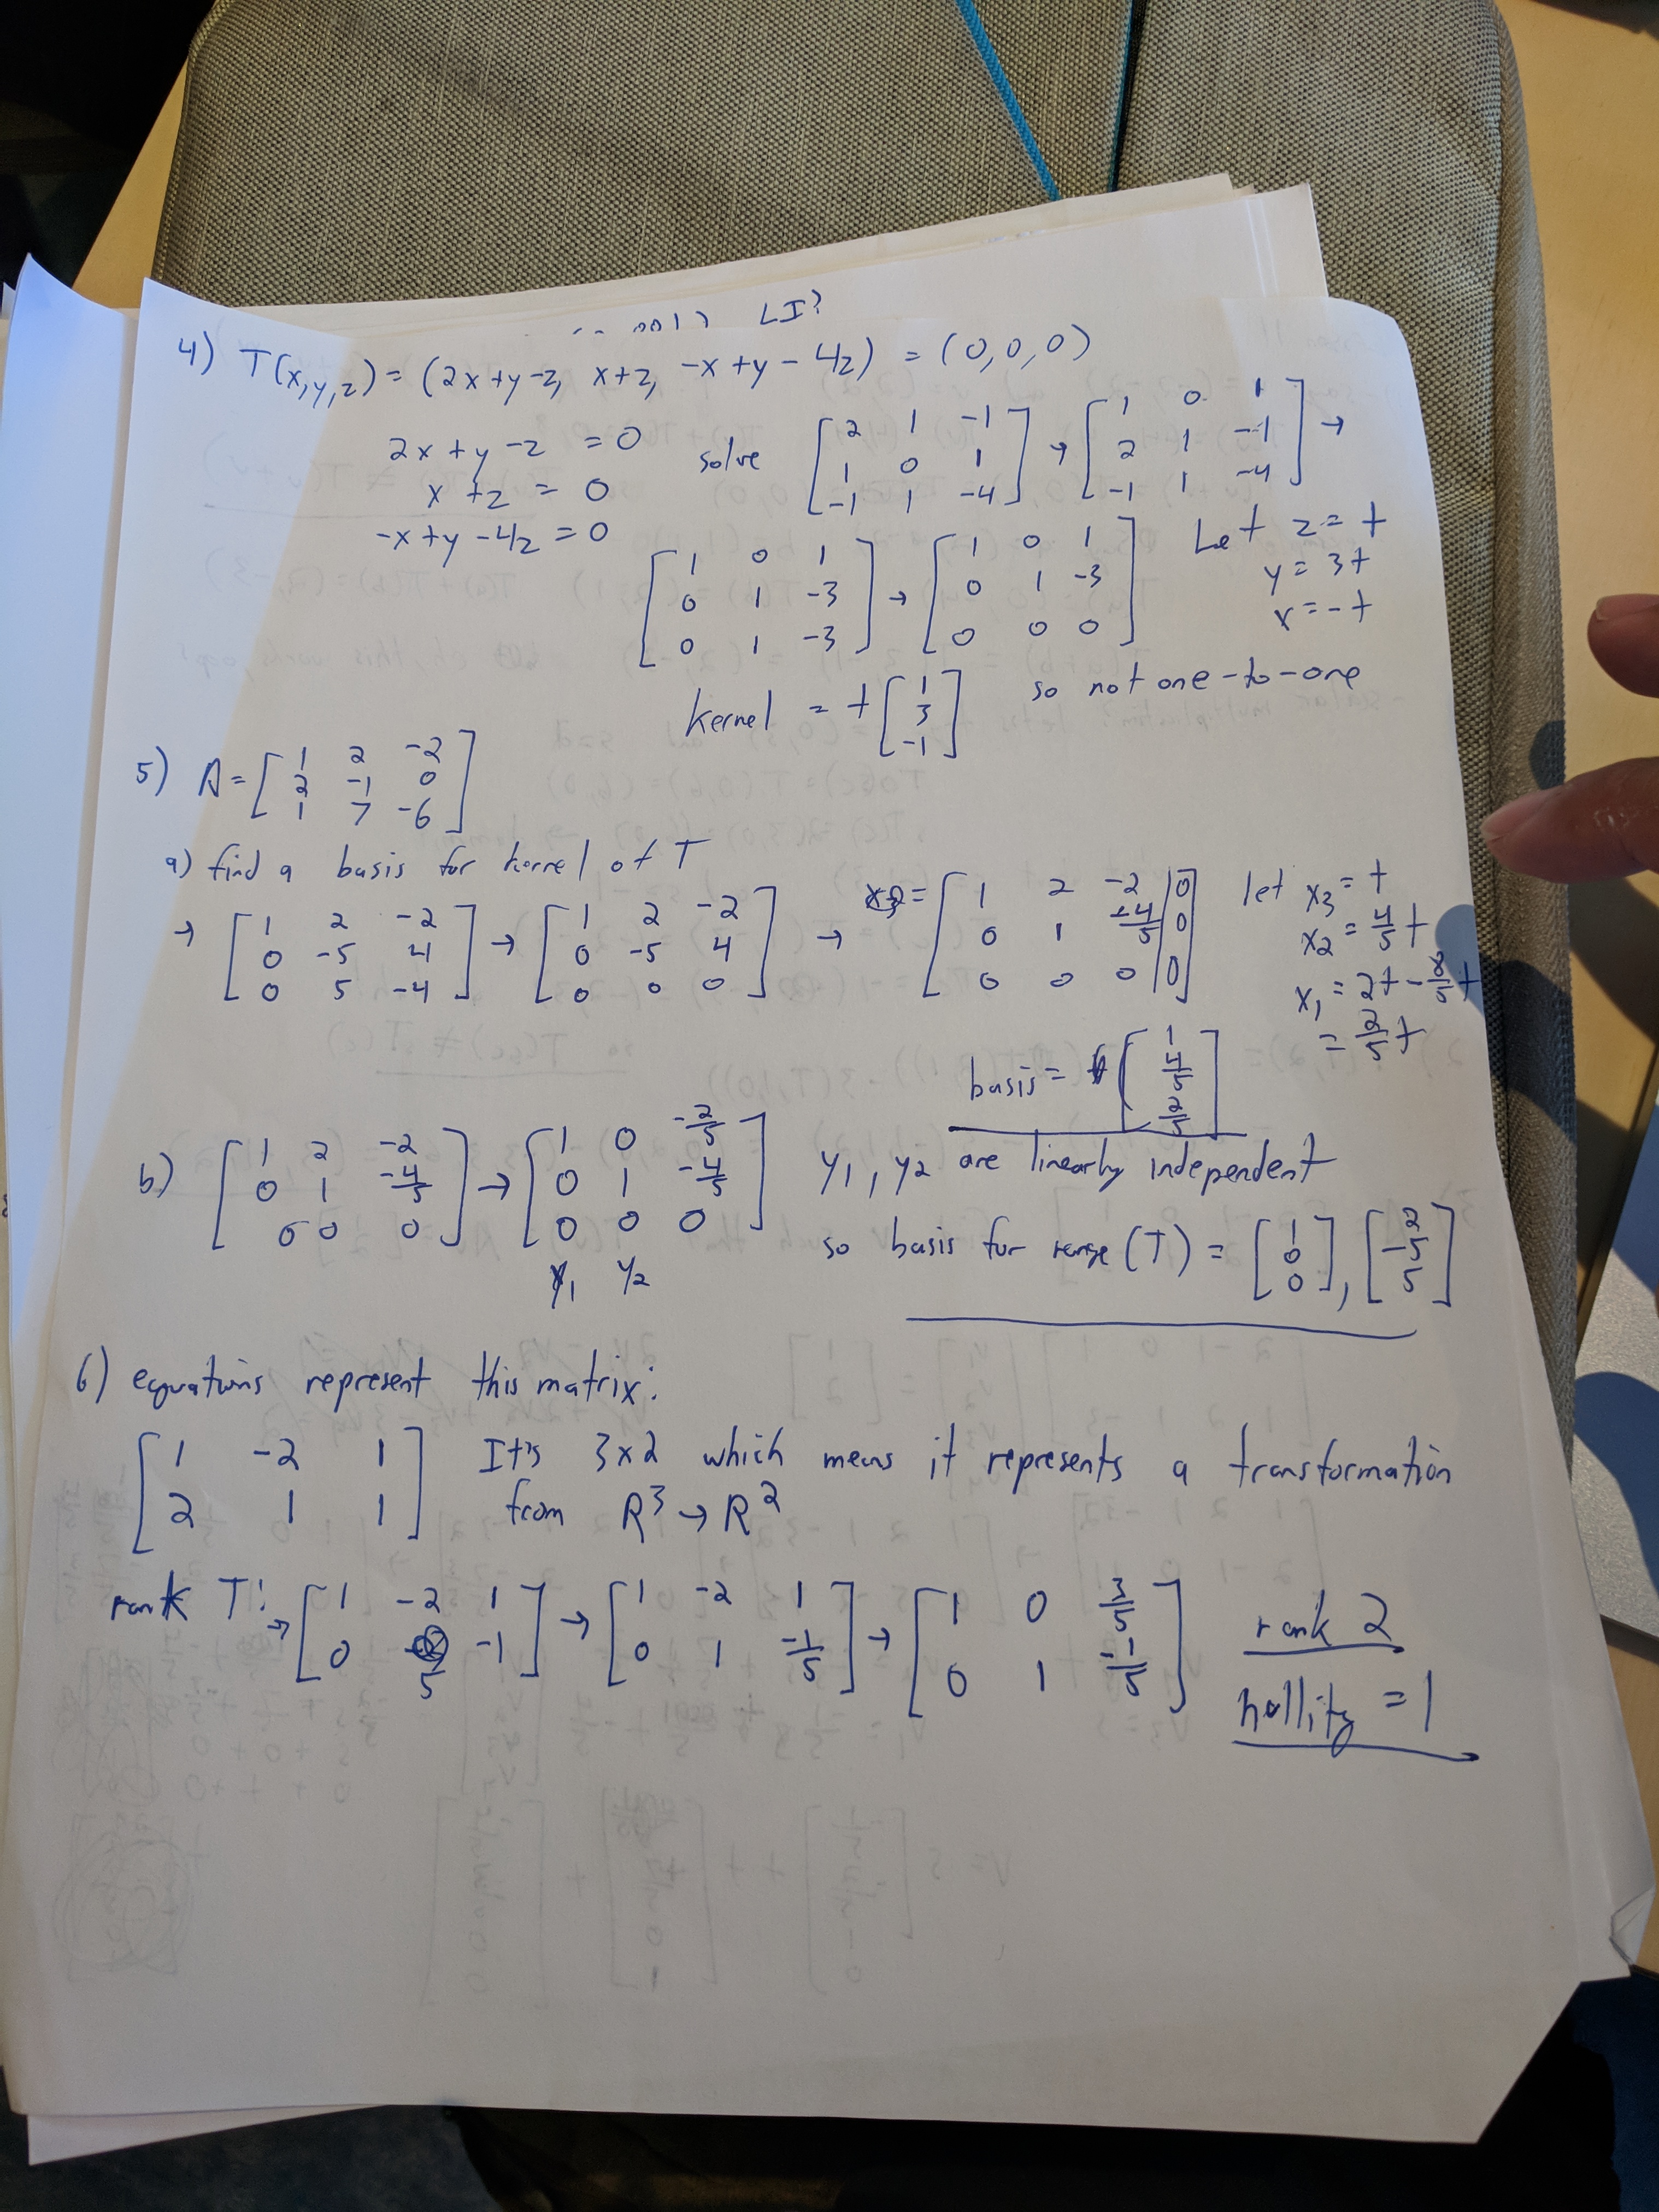 LI?
4) T(x,y,z) = (2x+y-z, x+z, -x+y-4z) = (0,0,0)
2x+y-z = 0
x+z = 0
-x+y-4z = 0
solve [2 1 -1; 1 0 1; -1 1 -4] → [1 0 1; 2 1 -1; -1 1 -4] →
[1 0 1; 0 1 -3; 0 1 -3] → [1 0 1; 0 1 -3; 0 0 0]
Let z = t
y = 3t
x = -t
kernel = t [1; 3; -1] so not one-to-one
5) A = [1 2 -2; 2 -1 0; 1 7 -6]
a) find a basis for kernel of T
→ [1 2 -2; 0 -5 4; 0 5 -4] → [1 2 -2; 0 -5 4; 0 0 0] → [1 2 -2 | 0; 0 1 -4/5 | 0; 0 0 0 | 0]
let x3 = t
x2 = 4/5 t
x1 = 2t - 8/5 t
= 2/5 t
basis = [1; 4/5; 2/5]
b) [1 2 -2; 0 1 -4/5; 0 0 0] → [1 0 -2/5; 0 1 -4/5; 0 0 0]
y1 y2
y1, y2 are linearly independent
so basis for range(T) = [1; 0; 0], [2; -5; 5]
6) equations represent this matrix:
[1 -2 1; 2 1 1] It's 3x2 which means it represents a transformation
from R³ → R²
rank T: → [1 -2 1; 0 5 -1] → [1 -2 1; 0 1 -1/5] → [1 0 3/5; 0 1 -1/5]
rank 2
nullity = 1